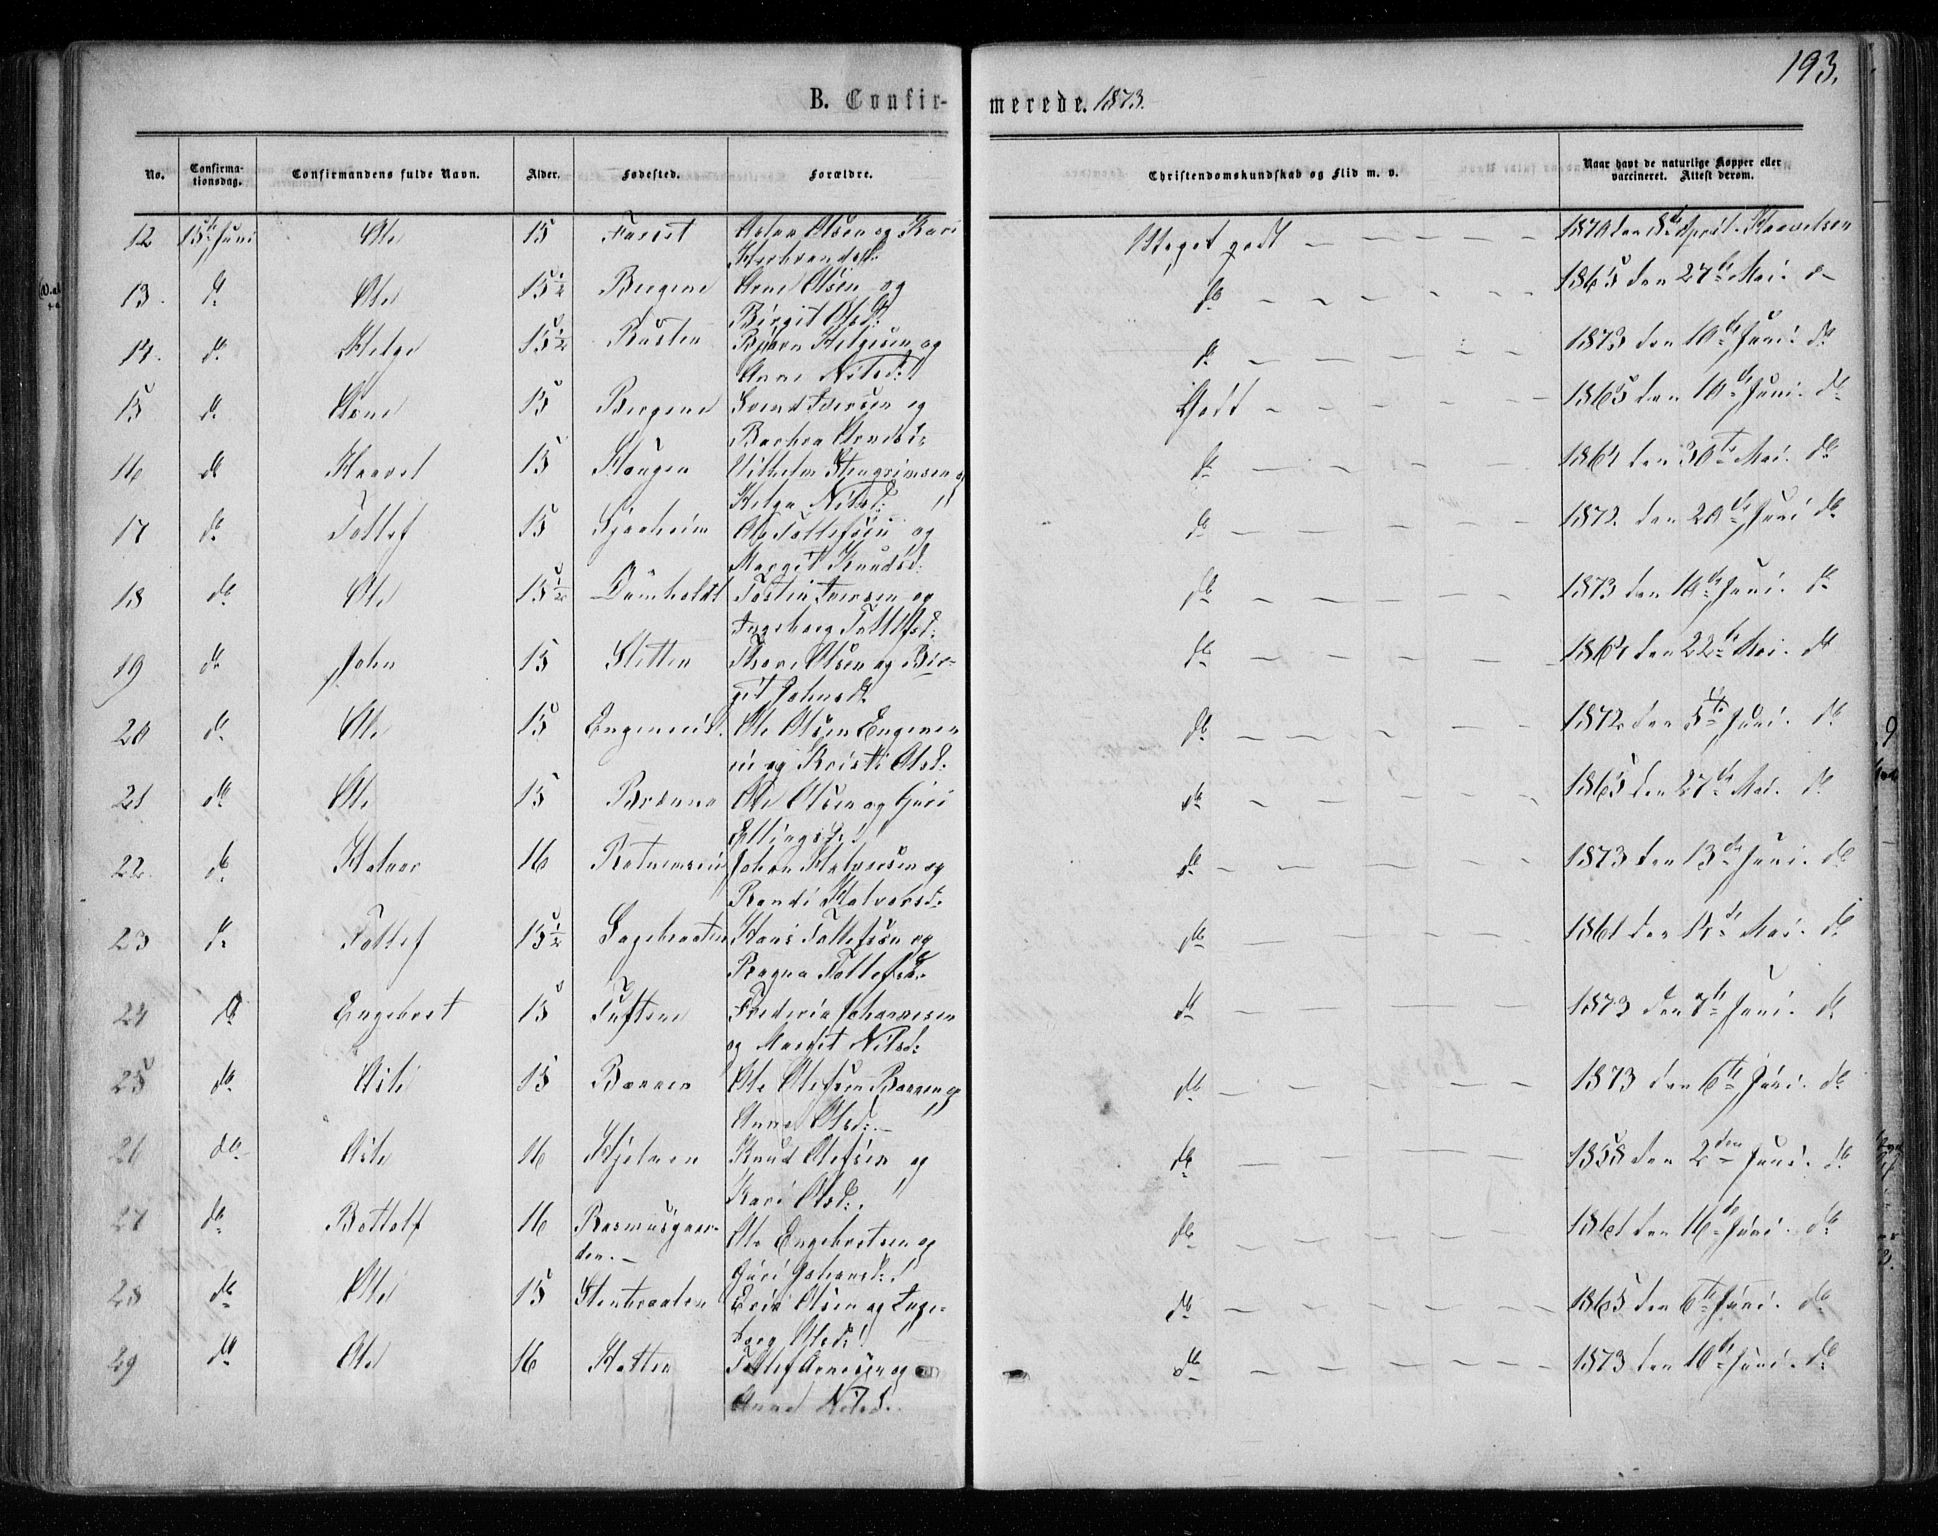 193.
B. Confirmerede. 1873.
No. Confirmationsdag. Confirmandens fulde Navn. Alder. Fødested. Forældre. Christendomskundskab og Flid m. v. Naar havt de naturlige Kopper eller vaccineret. Attest derom.
12 15de Juni Ole 15 Olsen og Kari Herbrandsd: Meget godt — — — — — 1870 den 8de April
13. do Ole 15½ Bergene Arne Olsen og Birgit Olsd: do — — — — — 1865 den 27de Mai. do
14. do Helge 15½ Rusten Bjørn Helgesen og Anne Nilsd: do — — — — — 1873 den 10de Juni. do
15 do Arne 15 Bergene Svend Iversen og Barbra Arnesd: Godt — — — — — 1865 den 10de Juni. do
16 do Haavel 15 Haugen Vilhelm Stengrimsen og Helga Nilsd: do — — — — — 1864 den 30te Mai. do
17 do Tollef 15 Ole Tollefsen og Margit Knudsd: do — — — — — 1872. den 20de Juni do
18 do Ole 15½ Tostin Iversen og Ingeborg Tollefsd: do — — — — — 1873 den 10de Juni. do
19 do John 15 Sletten Thore Olsen og Birgit Johnsd: do — — — — — 1864 den 22de Mai. do
20 do Ole 15 Ole Olsen og Kristi Olsd: do — — — — — 1872 den 5te Juni. do
21 do Ole 15 Brænna Ole Olsen og Guri Ellingsd: do — — — — — 1865 den 27de Mai. do
22. do Halvor 16 Johan Halvorsen og Randi Halvorsd: do — — — — — 1873 den 13de Juni. do
23 do Tollef 15½ Sagebraaten Hans Tollefsen og Ragna Tollefsd: do — — — — — 1861 den 14de Mai. do
24 do Engebret 15 Tuftene Frederik Johannesen og Margit Nilsd: do — — — — — 1873 den 7de Juni. do
25 do Asle 15 Barren Ole Olefsen Barren og Anne Olsd: do — — — — — 1873 den 6te Juni. do
26 do Asle 16 Knud Olefsen og Kari Olsd: do — — — — — 1858 den 2den Juni. do
27 do Bottolf 16 Rasmusgaarden. Ole Engebretsen og Guri Johansd: do — — — — — 1861 den 16de Juni. do
28 do Ole 15 Stenbraaten Erik Olsen og Ingeborg Olsd: do — — — — — 1865 den 6te Juni. do
29 do Ole 16 Tollef Arnesen og Anne Nilsd: do — — — — — 1873 den 10de Juni. do